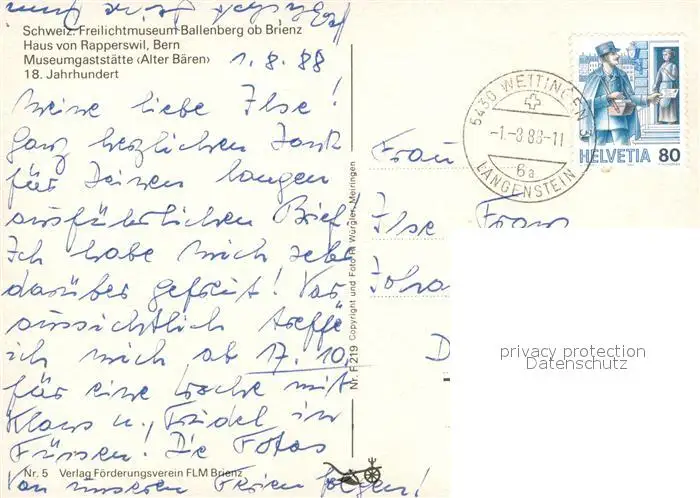 Schweiz. Freilichtmuseum Ballenberg ob Brienz
Haus von Rapperswil, Bern
Museumgaststätte ‹Alter Bären›
18. Jahrhundert
1.8.88
Meine liebe Ilse!
ganz herzlichen Dank
für Deinen langen
ausführlichen Brief.
Ich habe mich sehr
darüber gefreut! Vor
aussichtlich treffe
ich mich ab 17.10.
für eine Woche mit
Klaus u. Friedel in
Füssen! Die Fotos
von unseren Ferien folgen!
Nr. 5 Verlag Förderungsverein FLM Brienz
Nr. F 219 Copyright und Foto R. Würgler, Meiringen
5430 WETTINGEN 3
-1.-8.88-11
6a
LANGENSTEIN
HELVETIA 80
Frau
Ilse
D
privacy protection
Datenschutz